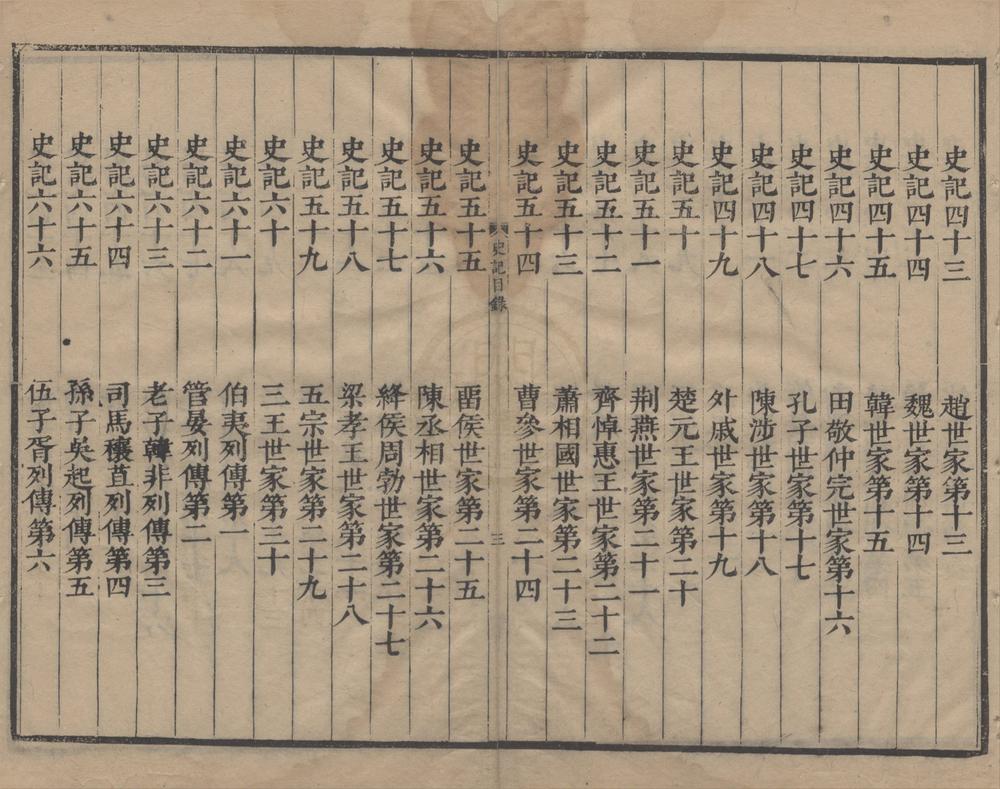 史記四十三 趙世家第十三
史記四十四 魏世家第十四
史記四十五 韓世家第十五
史記四十六 田敬仲完世家第十六
史記四十七 孔子世家第十七
史記四十八 陳涉世家第十八
史記四十九 外戚世家第十九
史記五十 楚元王世家第二十
史記五十一 荆燕世家第二十一
史記五十二 齊悼惠王世家第二十二
史記五十三 蕭相國世家第二十三
史記五十四 曹參世家第二十四
史記目錄 三
史記五十五 畱侯世家第二十五
史記五十六 陳丞相世家第二十六
史記五十七 絳侯周勃世家第二十七
史記五十八 梁孝王世家第二十八
史記五十九 五宗世家第二十九
史記六十 三王世家第三十
史記六十一 伯夷列傳第一
史記六十二 管晏列傳第二
史記六十三 老子韓非列傳第三
史記六十四 司馬穰苴列傳第四
史記六十五 孫子吳起列傳第五
史記六十六 伍子胥列傳第六